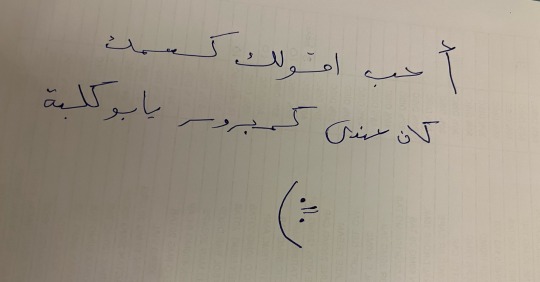 أحب اقولك كسمك
كان عندى كمبروسر يابو كلبة
(=: